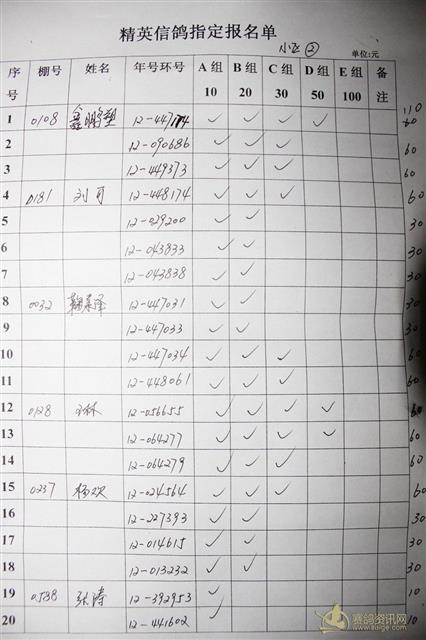 精英信鸽指定报名单
小组 ②
单位:元
序号 棚号 姓名 年号环号 A组 10 B组 20 C组 30 D组 50 E组 100 备注
1 0108 鑫鹏塑 ✓ ✓ ✓ ✓ 110
2 12-090686 ✓ ✓ ✓ 60
3 12-449373 ✓ ✓ ✓ 60
4 0181 刘可 12-448174 ✓ ✓ ✓ 60
5 12-029200 ✓ ✓ 30
6 12-043833 ✓ ✓ 30
7 12-043838 ✓ ✓ 30
8 0032 12-447031 ✓ ✓ 30
9 12-447033 ✓ ✓ 30
10 12-447034 ✓ ✓ ✓ 60
11 12-448061 ✓ ✓ ✓ 60
12 0128 12-056655 ✓ ✓ ✓ ✓
13 12-064277 ✓ ✓ ✓ ✓ 60
14 12-064279 ✓ ✓ ✓ 60
15 0237 杨欢 12-024564 ✓ ✓ ✓ 60
16 12-227393 ✓ ✓ 30
17 12-014615 ✓ ✓ 30
18 12-013232 ✓ ✓ 30
19 0588 张涛 12-392953 ✓ 10
20 12-441602 ✓ 10
赛鸽资讯网
www.saige.com